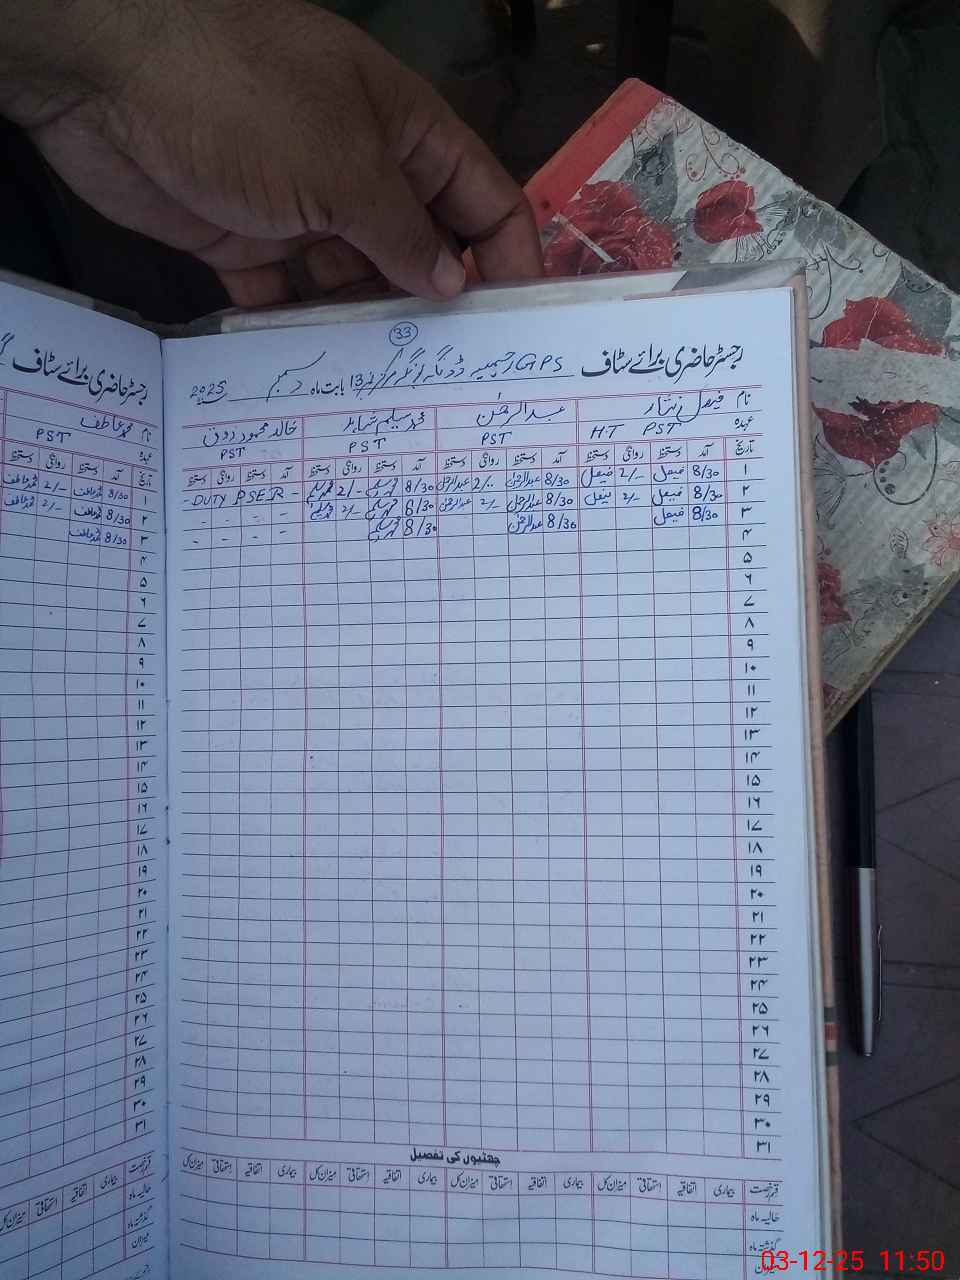 33
رجسٹر حاضری برائے سٹاف GPS بابت ماہ دسمبر 2025
نام فیصل نثار عبدالرحمٰن محمد سلیم شاہد خالد محمود
عہدہ H.T PST PST PST PST
تاریخ آمد دستخط روانگی دستخط آمد دستخط روانگی دستخط آمد دستخط روانگی دستخط آمد دستخط روانگی دستخط
۱ 8/30 فیصل 2/- فیصل 8/30 عبدالرحمٰن 2/- عبدالرحمٰن 8/30 2/- - PSER DUTY -
۲ 8/30 فیصل 2/- فیصل 8/30 عبدالرحمٰن 2/- عبدالرحمٰن 8/30 2/- - - - -
۳ 8/30 فیصل 8/30 عبدالرحمٰن 8/30 - - - -
۴
۵
۶
۷
۸
۹
۱۰
۱۱
۱۲
۱۳
۱۴
۱۵
۱۶
۱۷
۱۸
۱۹
۲۰
۲۱
۲۲
۲۳
۲۴
۲۵
۲۶
۲۷
۲۸
۲۹
۳۰
۳۱
چھٹیوں کی تفصیل
قسم رخصت بیماری اتفاقیہ استحقاقی میزان کل بیماری اتفاقیہ استحقاقی میزان کل بیماری اتفاقیہ استحقاقی میزان کل بیماری اتفاقیہ استحقاقی میزان کل
حالیہ ماہ
گذشتہ ماہ
میزان
رجسٹر حاضری برائے سٹاف
نام محمد عاطف
عہدہ PST
تاریخ آمد دستخط روانگی دستخط
۱ 8/30 2/-
۲ 8/30 2/-
۳ 8/30
۴
۵
۶
۷
۸
۹
۱۰
۱۱
۱۲
۱۳
۱۴
۱۵
۱۶
۱۷
۱۸
۱۹
۲۰
۲۱
۲۲
۲۳
۲۴
۲۵
۲۶
۲۷
۲۸
۲۹
۳۰
۳۱
قسم رخصت بیماری اتفاقیہ استحقاقی میزان کل
حالیہ ماہ
گذشتہ ماہ
میزان
03-12-25 11:50